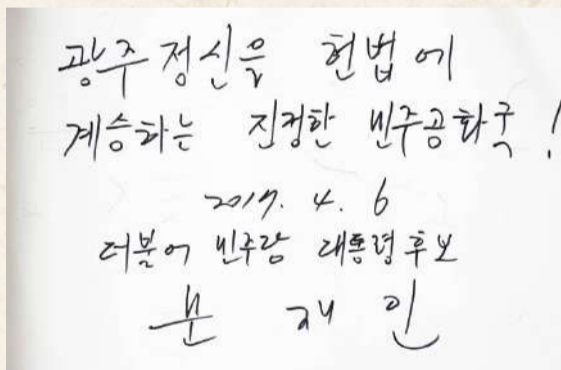 광주정신을 헌법에
계승하는 진정한 민주공화국!
2017. 4. 6
더불어 민주당 대통령후보
문재인